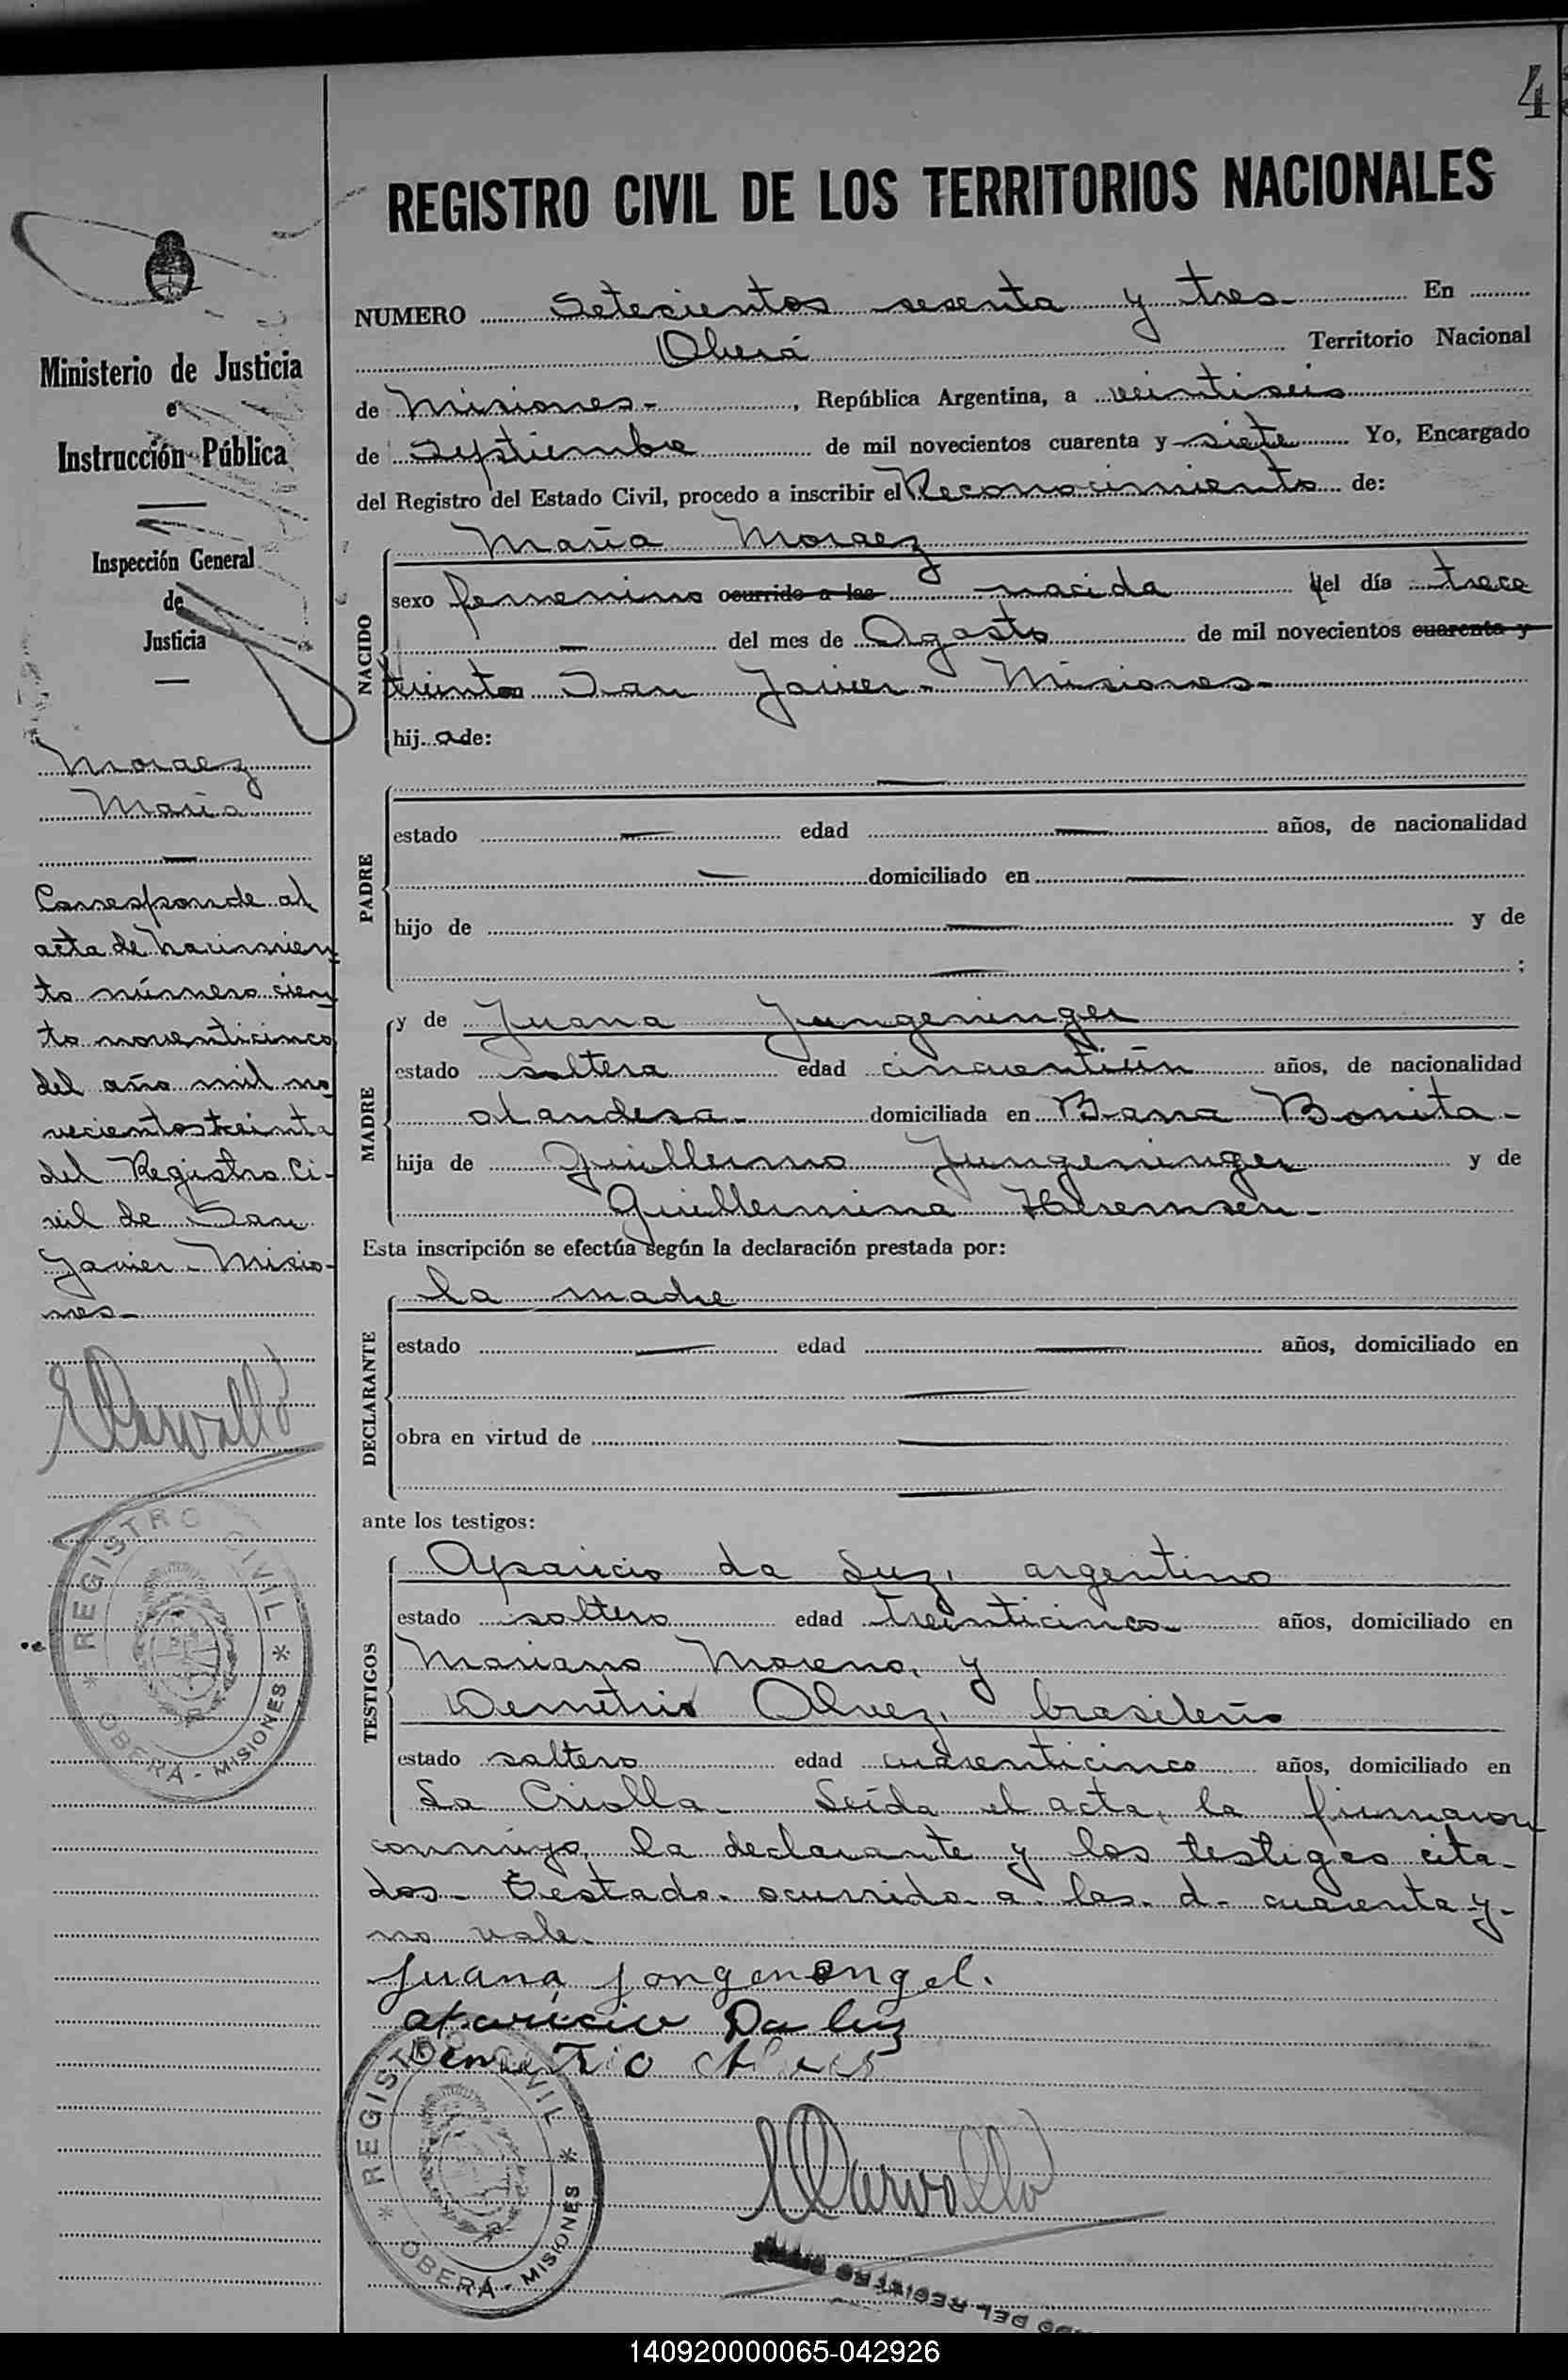 4
REGISTRO CIVIL DE LOS TERRITORIOS NACIONALES
Ministerio de Justicia
e
Instrucción Pública
Inspección General
de
Justicia
Moraez
María
Corresponde al
acta de Nacimien
to número cien
to noventicinco
del año mil no
vecientos treinta
del Registro Ci-
vil de San
Javier - Misio-
nes-
REGISTRO CIVIL
OBERA - MISIONES
NUMERO Setecientos sesenta y tres En
Oberá Territorio Nacional
de Misiones-, República Argentina, a veintiseis
de Septiembre de mil novecientos cuarenta y siete Yo, Encargado
del Registro del Estado Civil, procedo a inscribir el Reconocimiento de:
NACIDO
María Moraez
sexo femenino ocurrido a las nacida del día trece
— del mes de Agosto de mil novecientos cuarenta y
treinta San Javier - Misiones-
hij a de:
PADRE
—
estado — edad — años, de nacionalidad
— domiciliado en —
hijo de — y de
— ;
MADRE
y de Juana Jungeninger
estado soltera edad cincuentiún años, de nacionalidad
olandesa- domiciliada en Barra Bonita-
hija de Guillermo Jungeninger y de
Guillermina
Esta inscripción se efectúa según la declaración prestada por:
DECLARANTE
la madre
estado — edad — años, domiciliado en
—
obra en virtud de —
—
ante los testigos:
TESTIGOS
Aparicio da Luz, argentino
estado soltero edad treinticinco- años, domiciliado en
Mariano Moreno, y
Demetrio Alvez, brasileño
estado soltero edad cuarenticinco años, domiciliado en
La Criolla- Leída el acta, la firmaron
conmigo, la declarante y los testigos cita-
dos- Testado- ocurrido- a- las- d- cuarenta y-
no vale-
Juana Jongenengel.
aparicio Da luz
Demetrio Alves
REGISTRO CIVIL
OBERA - MISIONES
DEL REGISTRO
140920000065-042926